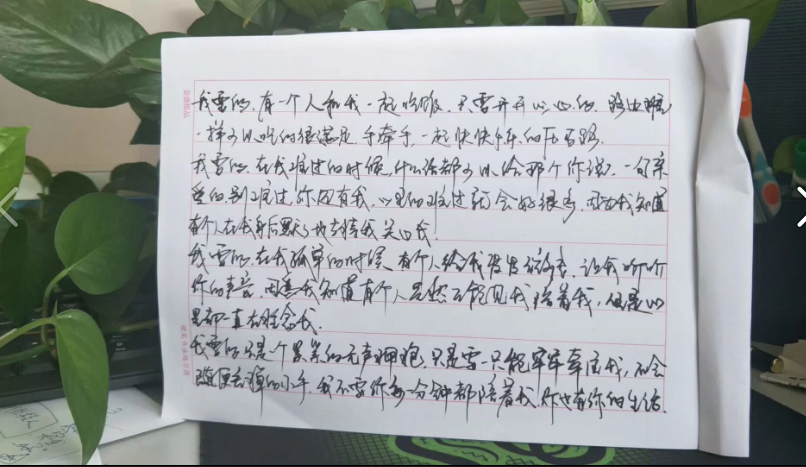 我要的,有一个人和我一起吃饭,只要开开心心的,路边摊
一样可以吃的很满足,手牵手,一起快快乐乐的压马路.
我要的,在我难过的时候,什么话都可以给那个你说.一句亲
爱的别难过你还有我,心里的难过就会好很多,因为我知道
有个人在我身后默默地支持我关心我.
我要的,在我孤单的时候,有个人给我发发语音,让我听听
你的声音,因为我知道有个人虽然不能见我陪着我,但是心
里却一直在想念我.
我要的只是一个紧紧的无声拥抱,只是要一只能牢牢牵住我,不会
随便丢掉的小手,我不要你每分钟都陪着我,你也有你的生活.